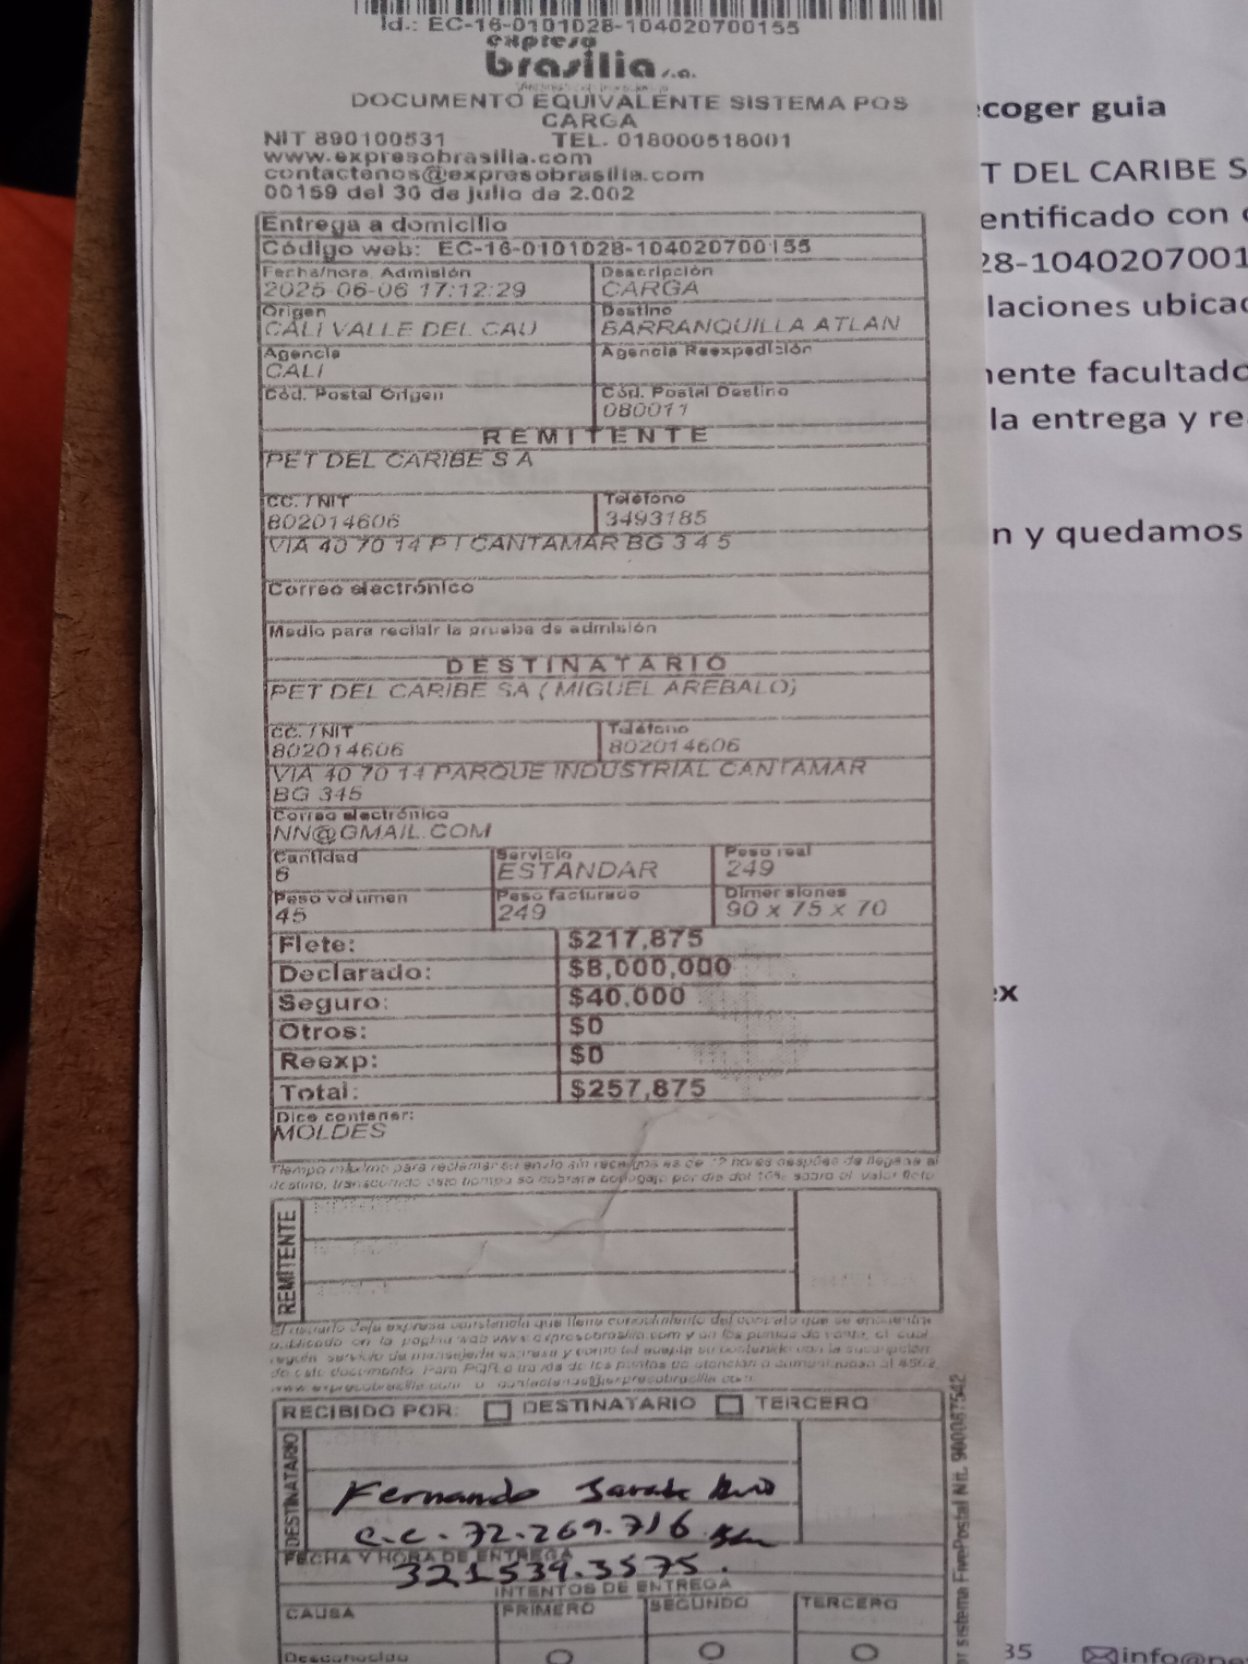 Id.: EC-16-0101028-104020700155
expreso
brasilia s.a.
DOCUMENTO EQUIVALENTE SISTEMA POS
CARGA
NIT 890100531 TEL. 018000518001
www.expresobrasilia.com
contactenos@expresobrasilia.com
00159 del 30 de julio de 2.002
Entrega a domicilio
Código web: EC-16-0101028-104020700155
Fecha/hora Admisión Descripción
2025-06-06 17:12:29 CARGA
Origen Destino
CALI VALLE DEL CAU BARRANQUILLA ATLAN
Agencia Agencia Reexpedición
CALI
Cód. Postal Origen Cód. Postal Destino
080011
REMITENTE
PET DEL CARIBE S A
CC. / NIT Teléfono
802014606 3493185
VIA 40 70 14 P I CANTAMAR BG 3 4 5
Correo electrónico
Medio para recibir la prueba de admisión
DESTINATARIO
PET DEL CARIBE SA ( MIGUEL AREBALO)
CC. / NIT Teléfono
802014606 802014606
VIA 40 70 14 PARQUE INDUSTRIAL CANTAMAR
BG 345
Correo electrónico
NN@GMAIL.COM
Cantidad Servicio Peso real
6 ESTANDAR 249
Peso volumen Peso facturado Dimensiones
45 249 90 x 75 x 70
Flete: $217,875
Declarado: $8,000,000
Seguro: $40,000
Otros: $0
Reexp: $0
Total: $257,875
Dice contener:
MOLDES
Tiempo máximo para reclamar su envío sin recargos es de 72 horas después de llegada al
destino, transcurrido este tiempo se cobrará bodegaje por día del 10% sobre el valor flete
REMITENTE
El usuario deja expresa constancia que tiene conocimiento del contrato que se encuentra
publicado en la pagina web www.expresobrasilia.com y en los puntos de venta, el cual
regula servicio de mensajería expresa y como tal acepta su contenido con la suscripción
de este documento. Para PQR a través de los puntos de atención o
www.expresobrasilia.com o contactenos@expresobrasilia.com
RECIBIDO POR: DESTINATARIO TERCERO
DESTINATARIO
Fernando
C.C. 72.269.716
FECHA Y HORA DE ENTREGA
321539.3575.
INTENTOS DE ENTREGA
CAUSA PRIMERO SEGUNDO TERCERO
Desconocido
sistema FivePostal Nit. 900087542
coger guia
T DEL CARIBE S
entificado con
28-1040207001
laciones ubicad
ente facultado
la entrega y re
n y quedamos
ex
35 info@pe